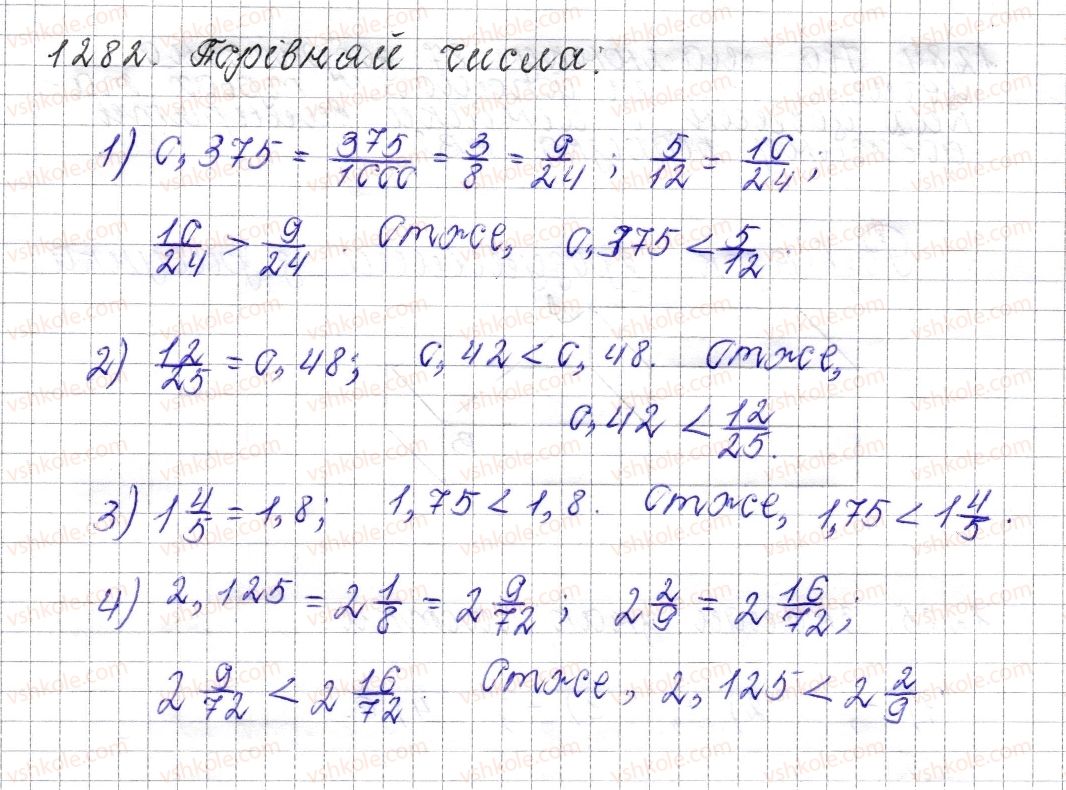 1282. Порівняй числа:
1) 0,375 = 375/1000 = 3/8 = 9/24 ; 5/12 = 10/24 ;
10/24 > 9/24 . Отже, 0,375 < 5/12 .
2) 12/25 = 0,48; 0,42 < 0,48. Отже,
0,42 < 12/25.
3) 1 4/5 = 1,8; 1,75 < 1,8. Отже, 1,75 < 1 4/5 .
4) 2,125 = 2 1/8 = 2 9/72 ; 2 2/9 = 2 16/72 ;
2 9/72 < 2 16/72 . Отже, 2,125 < 2 2/9 .
vshkole.com